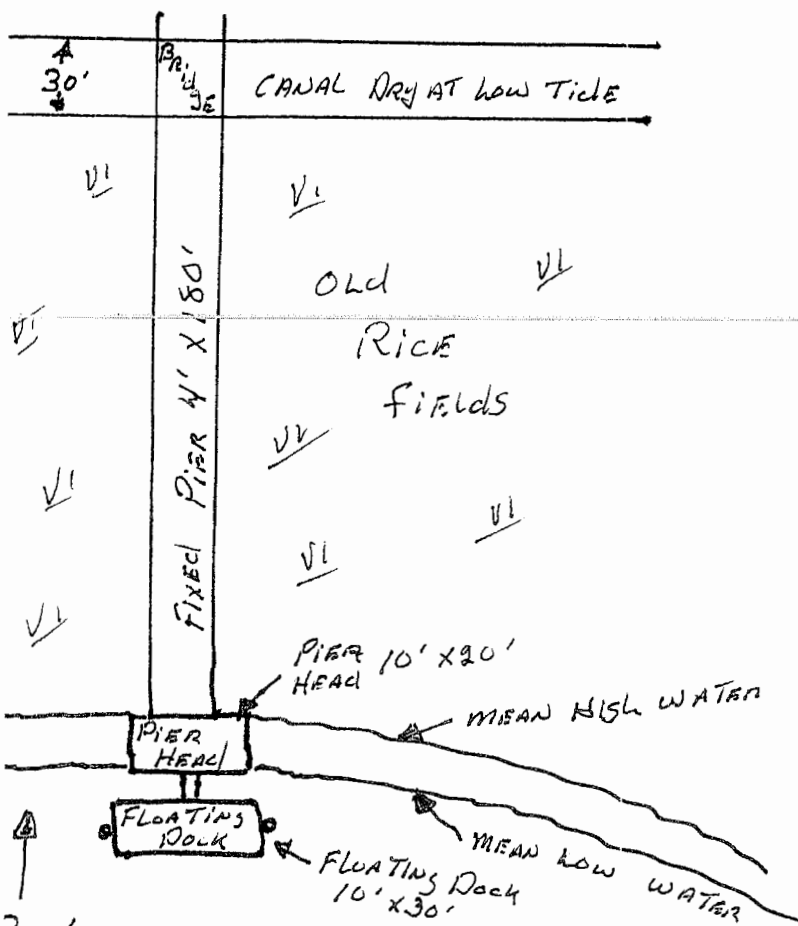 BRidgE
30'
CANAL DRY AT LOW TidE
OLd
RicE
fiELdS
FixEd PiER 4' X 180'
PiER 10' X 20'
HEAd
MEAN HigH WATER
PiER
HEAd
FLOATiNg
DOcK
FLOATiNg DOcK
10' X 30'
MEAN LOW WATER